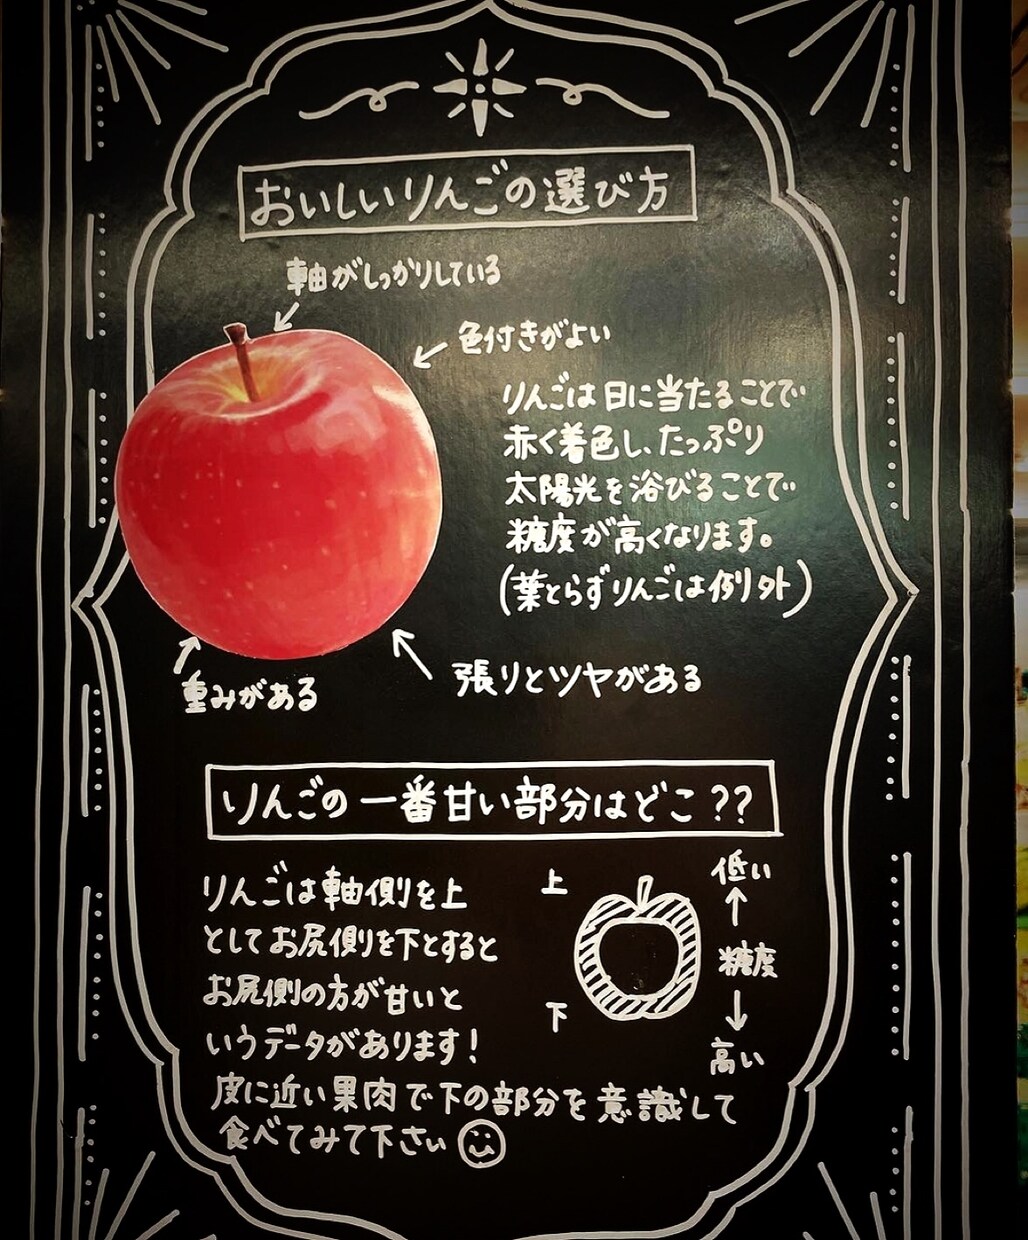 おいしいりんごの選び方
軸がしっかりしている
色付きがよい
りんごは日に当たることで
赤く着色し、たっぷり
太陽光を浴びることで
糖度が高くなります。
(葉とらずりんごは例外)
重みがある
張りとツヤがある
りんごの一番甘い部分はどこ??
りんごは軸側を上
としてお尻側を下とすると
お尻側の方が甘いと
いうデータがあります!
皮に近い果肉で下の部分を意識して
食べてみて下さい
上
下
低い
糖度
高い